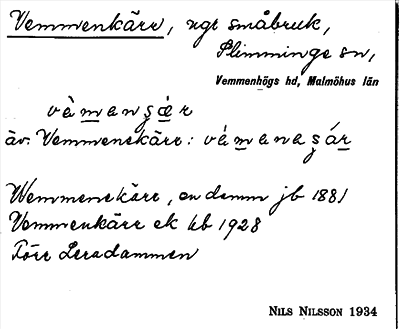 Vemmenkärr, ngr småbruk,
Slimminge sn,
Vemmenhögs hd, Malmöhus län
vämanʂär
äv. Vemmenekärr: vämanaʂár
Wemmenekärr, en damm jb 1881
Vemmenkärr ek kb 1928
Förr Leradammen
NILS NILSSON 1934